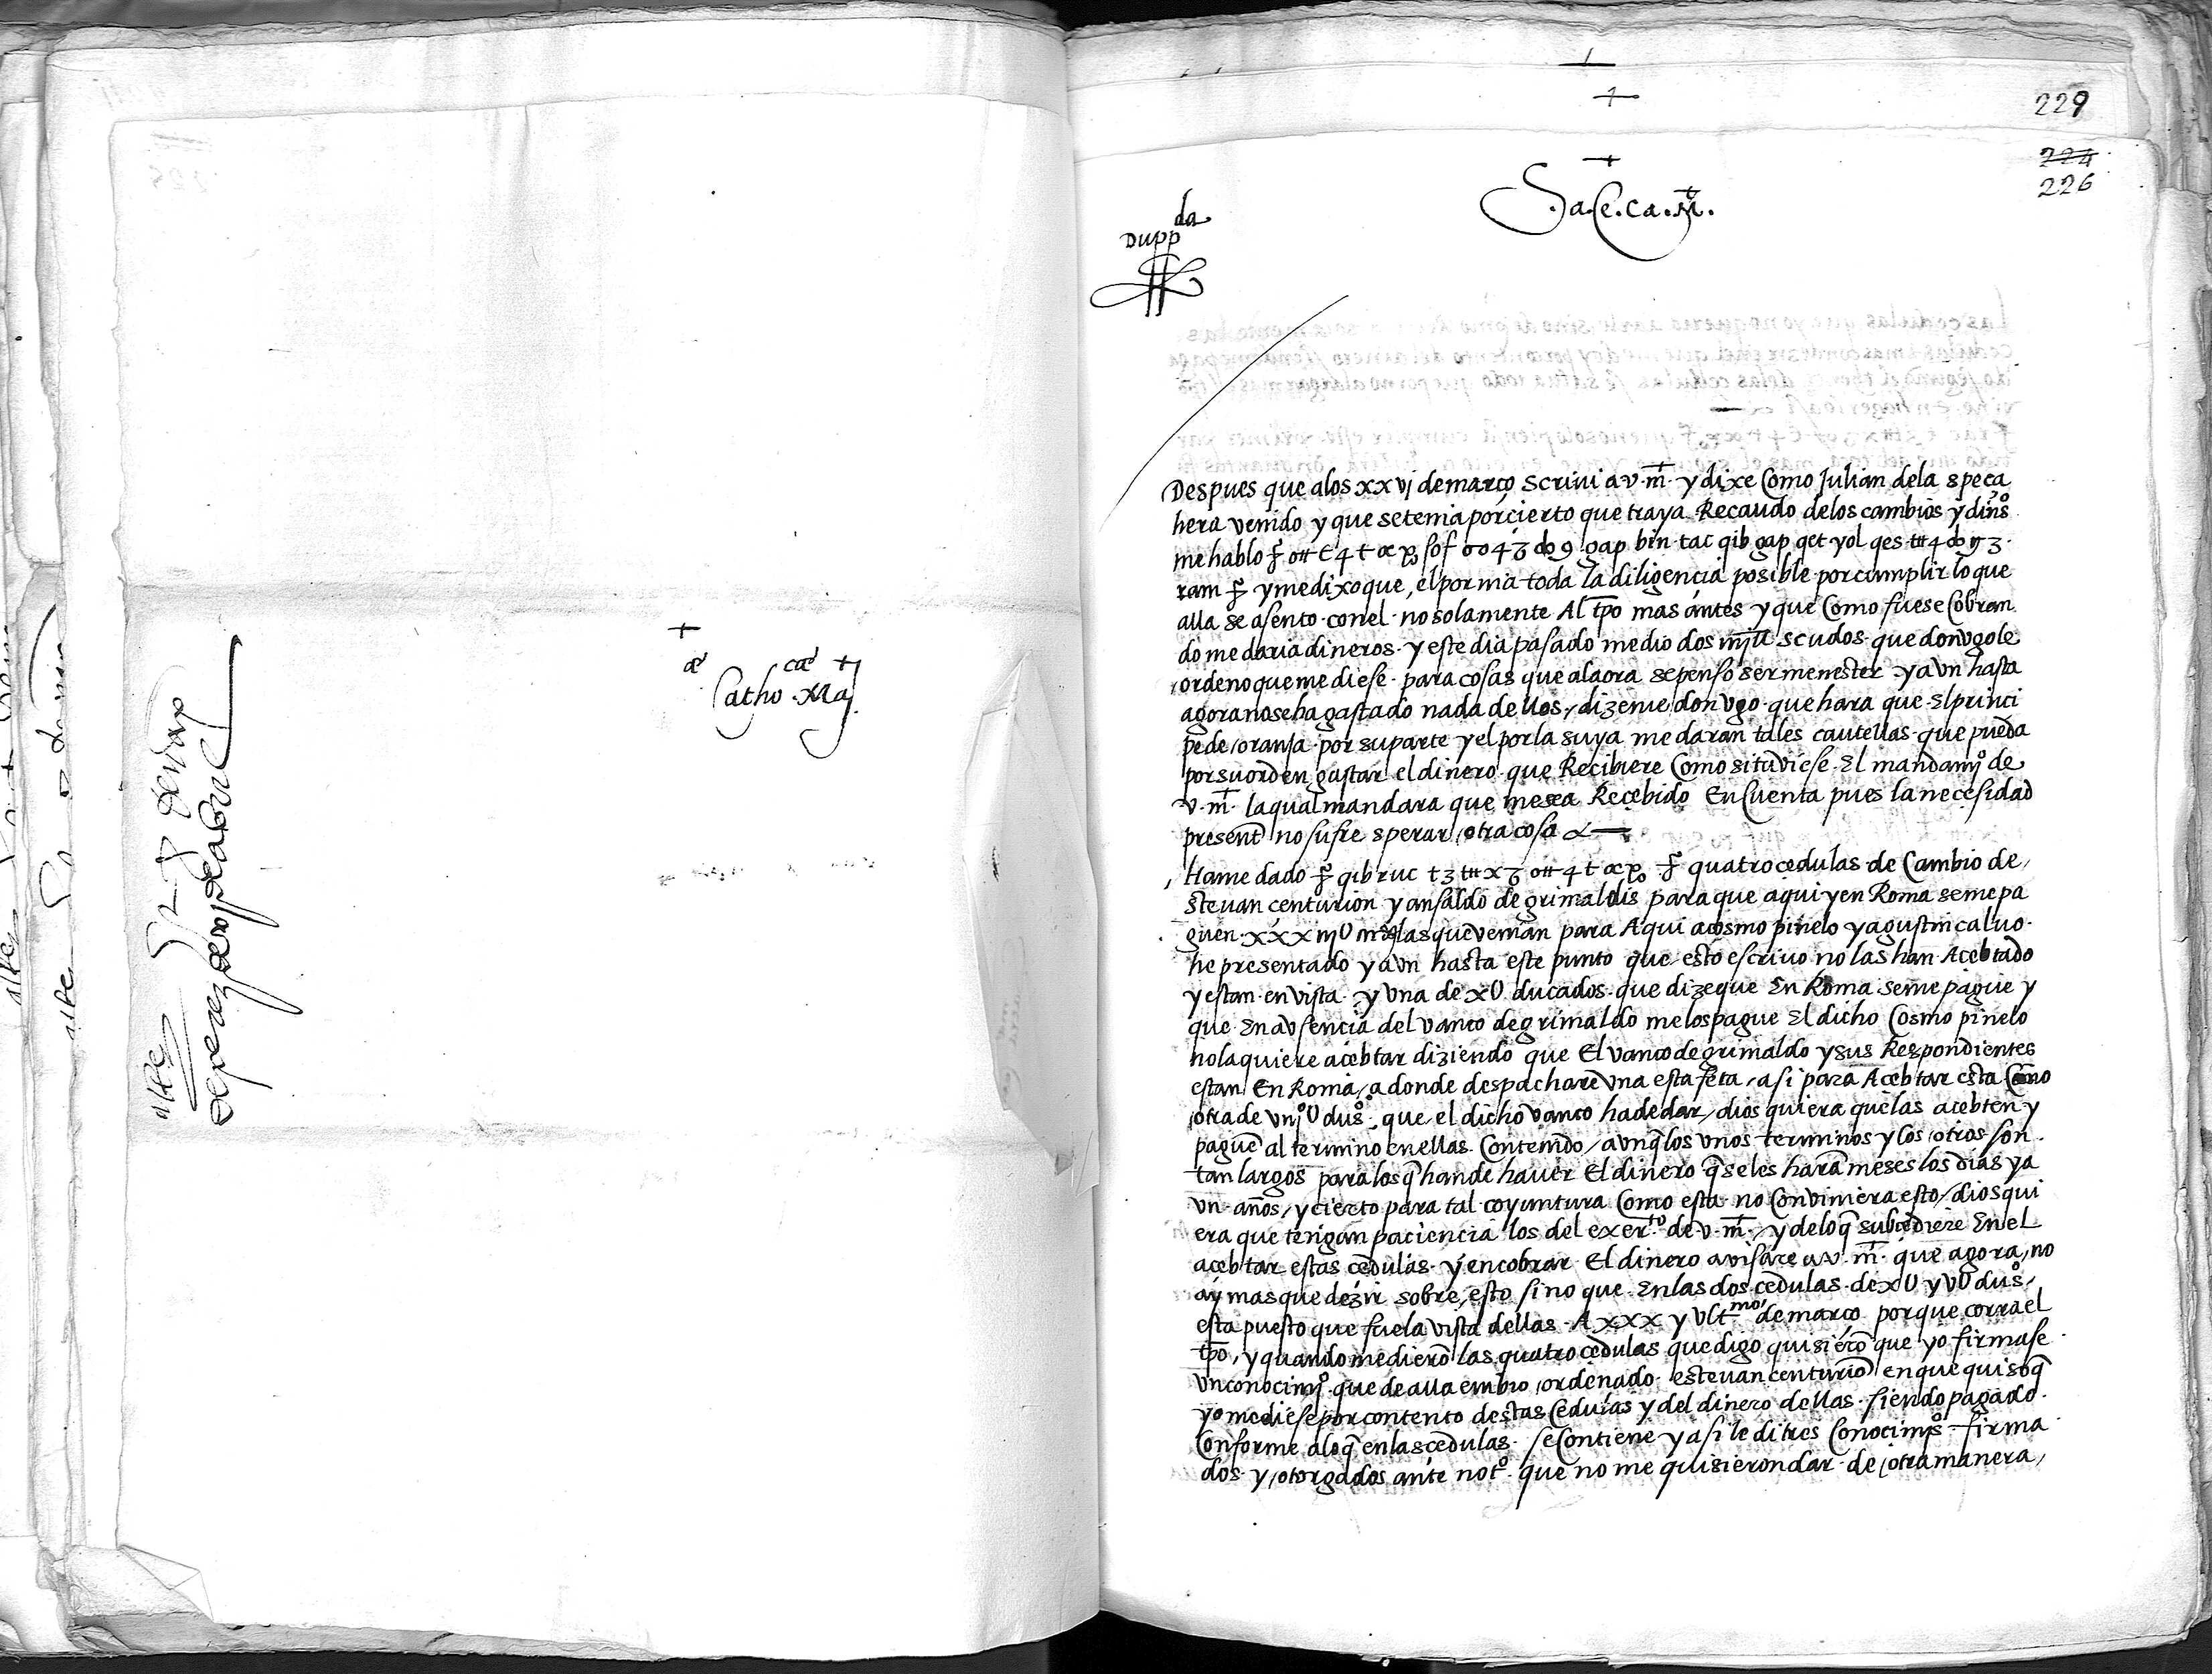 ca͠ +
Catho. Mag.
alteᵃ 1527 genova
de perez de 10 de abril
229
224
226
+
.Sa.Ce.ca.M̃.
Duppᵈᵃ
Despues que alos xxvj de março scrivi a v. mᵗ. y dixe Como Julian dela speça
hera venido y que se tenia por cierto que traya Recaudo delos cambios y dinºs
me hablo gap bin tac qib gap qet yol qes
ram y me dixo que, el pornia toda la diligencia posible por cumplir lo que
alla se asento con el no solamente Al tp̄o mas antes y que Como fuese Cobran
do me daria dineros y este dia pasado me dio dos mjll scudos que don vgo le
ordeno que me diese para cosas que ala ora se penso ser menester y avn hasta
agora no se ha gastado nada dellos, dizeme don vgo que hara que El princi
pe de oranja por su parte y el por la suya me daran tales cautellas que pueda
por su orden gastar el dinero que Recibiere Como si tuviese El mandamjº de
v. mᵗ. la qual mandara que me sea Recebido En Cuenta pues la necesidad
present̄ no sufre sperar otra cosa
Hame dado qib ruc quatro cedulas de Cambio de
stevan centurion y ansaldo de grimaldis para que aqui y en Roma se me pa
guen xxx las que venian para Aqui a cosmo pinelo y agustin calvo
he presentado y avn hasta este punto que esto escrivo no las han Acebtado
y estan en vista y vna de xU ducados que dize que En Roma se me pague y
que En avsencia del vanco de grimaldo me los pague El dicho Cosmo pinelo
no la quiere acebtar diziendo que El vanco de grimaldo y sus Respondientes
estan En Roma, a donde despachare vna estafeta, asi para Acebtar esta Como
otra de vnjºU dusº. que el dicho vanco ha de dar, dios quiera que las acebten y
paguē al termino en ellas Contenido, avnq̄ los vnos terminos y los otros son
tan largos para los q̄ han de haver El dinero q̄ se les harā meses los dias y a
vn años, y cierto para tal coyuntura Como esta no Conviniera esto, dios qui
era que tengan paciencia los del exerᵗᵒ de v. mᵗ. y delo q̄ subcediere En el
acebtar estas cedulas y en cobrar El dinero avisare a v. mᵗ. que agora, no
ay mas que dezir sobre, esto sino que En las dos cedulas de xU y vU dusº,
esta puesto que fue la vista dellas A xxx y vltᵐᵒ de março porque corra el
tp̄o, y quando me dierō las quatro cedulas que digo quisierō que yo firmase
vn conocimjº que de alla embio ordenado estevan centuriō en que quiso q̄
yo me diese por contento destas Cedulas y del dinero dellas siendo pagado
Conforme alo q̄ en las cedulas se Contiene y asi le di tres Conocimjºs firma
dos y otorgados ante notº. que no me quisieron dar de otra manera,